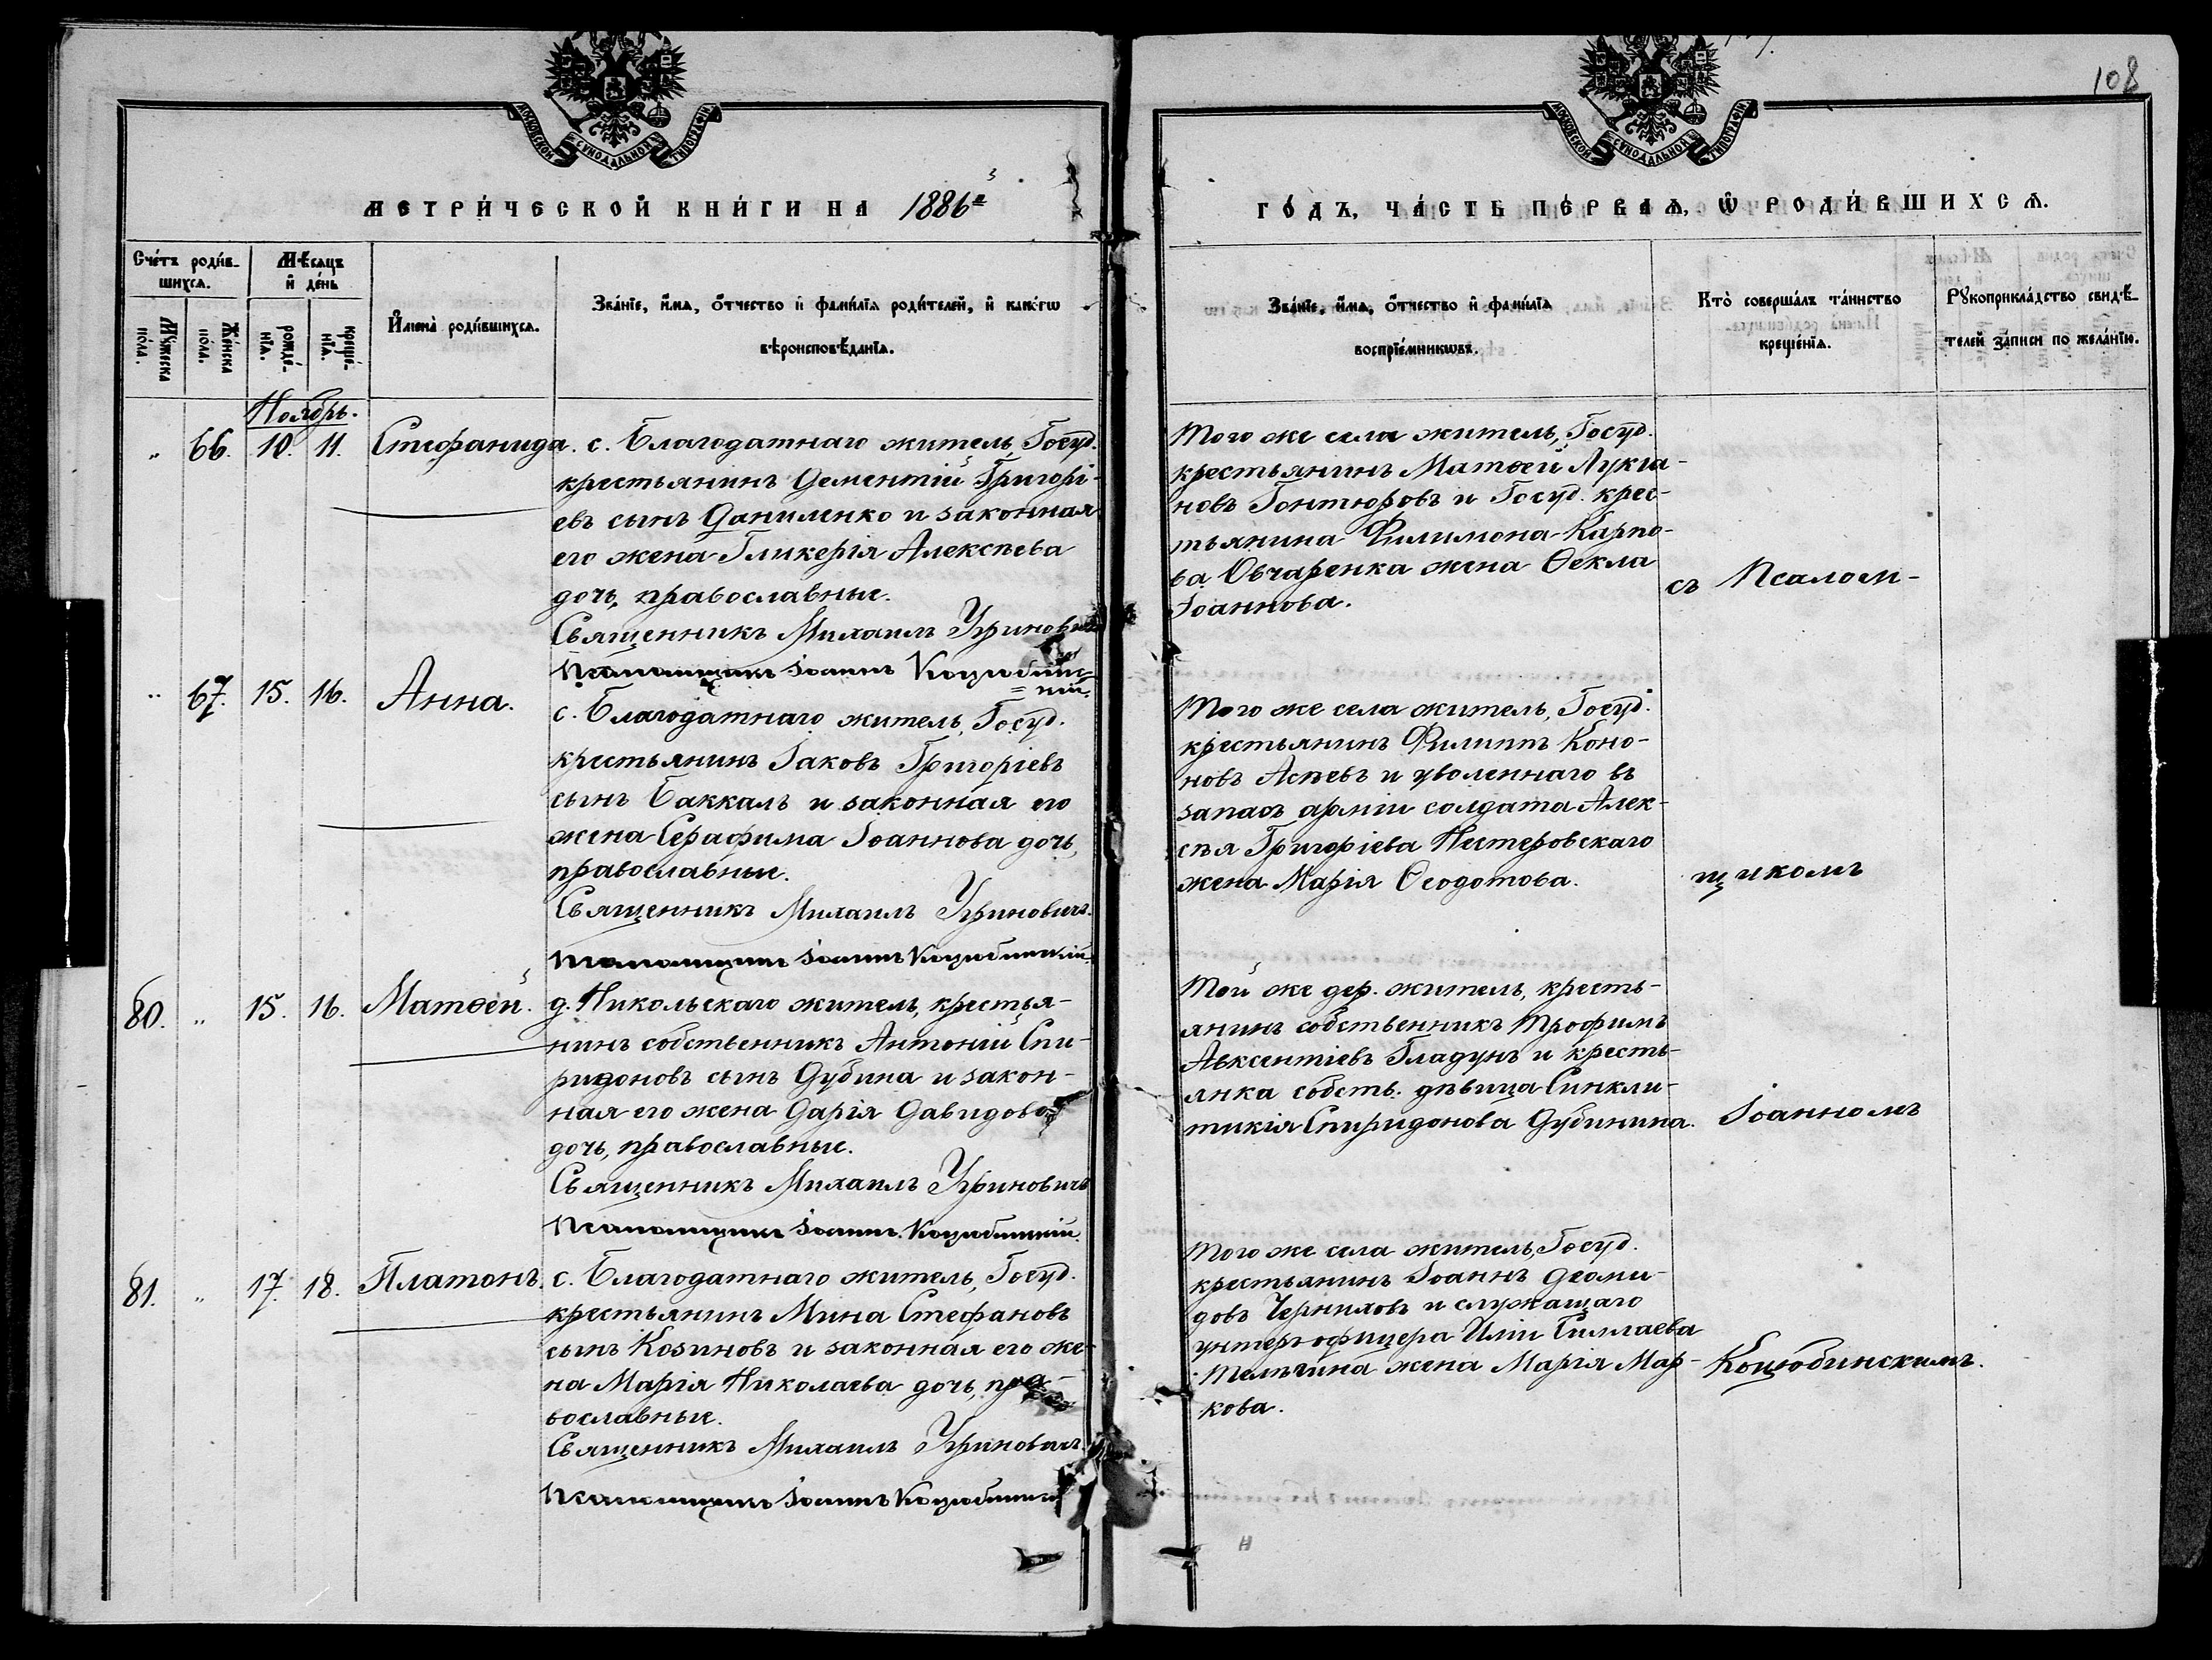 108
МОСКОВСКОЙ СѴНОДАЛЬНОЙ ТИПОГРАФІИ
МОСКОВСКОЙ СѴНОДАЛЬНОЙ ТИПОГРАФІИ
МЕТРИ́ЧЕСКОЙ КНИ́ГИ НА 1886й
ГО́ДЪ, ЧА́СТЬ ПЕ́РВАѦ, Ѡ РОДИ́ВШИХСѦ.
Счетъ роди́вшихсѧ.
Мꙋжеска по́ла.
Же́нска по́ла.
Мѣсѧцъ и де́нь
рожде́нїѧ.
креще́нїѧ.
Имена̀ роди́вшихсѧ.
Зва́нїе, и́мѧ, о́тчество и фами́лїѧ роди́телей, и како́гѡ
вѣроисповѣ́данїѧ.
Зва́нїе, и́мѧ, о́тчество и фами́лїѧ
воспрїе́мникѡвъ.
Кто̀ соверша́лъ та́инство
креще́нїѧ.
Рꙋкоприкла́дство свидѣ́-
телей за́писи по жела́нїю.
Ноябрь.
„ 66. 10. 11. Стефанида.
с. Благодатнаго житель, Госуд.
крестьянинъ Дементій Григорі-
евъ сынъ Даниленко и законная
его жена Гликерія Алексѣева
дочь, православные.
Священникъ Михаилъ Угриновичъ
Псаломщикъ Іоаннъ Коцюбинс-
кій.
Того же села житель, Госуд.
крестьянинъ Матѳей Лукіа-
новъ Гонтюровъ и Госуд. крес-
тьянина Филимона Карпо-
ва Овчаренка жена Ѳекла
Іоаннова.
съ Псалом-
„ 67. 15. 16. Анна.
с. Благодатнаго житель, Госуд.
крестьянинъ Іаковъ Григоріевъ
сынъ Баккалъ и законная его
жена Серафима Іоаннова дочь,
православные.
Священникъ Михаилъ Угриновичъ.
Псаломщикъ Іоаннъ Коцюбинскій.
Того же села житель, Госуд.
крестьянинъ Филиппъ Коно-
новъ Асѣевъ и уволеннаго въ
запасъ арміи солдата Алек-
сѣя Григоріева Нестеровскаго
жена Марія Ѳеодотова.
щикомъ
80. „ 15. 16. Матѳей.
д. Никольскаго житель, крестья-
нинъ собственникъ Антоній Спи-
ридоновъ сынъ Дубина и закон-
ная его жена Дарія Давидова
дочь, православные.
Священникъ Михаилъ Угриновичъ
Псаломщикъ Іоаннъ Коцюбинскій.
Той же дер. житель, кресть-
янинъ собственникъ Трофимъ
Авксентіевъ Гладунъ и кресть-
янка собств. дѣвица Синкли-
тикія Спиридонова Дубинина.
Іоанномъ
81. „ 17. 18. Платонъ.
с. Благодатнаго житель, Госуд.
крестьянинъ Мина Стефановъ
сынъ Козиновъ и законная его же-
на Марія Николаева дочь, пра-
вославные.
Священникъ Михаилъ Угриновичъ.
Псаломщикъ Іоаннъ Коцюбинскій
Того же села житель, Госуд.
крестьянинъ Іоаннъ Діоми-
довъ Черниловъ и служащаго
унтеръ офицера Иліи
жена Марія Мар-
кова.
Коцюбинскимъ.